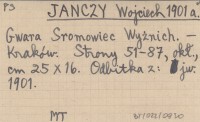 P3 JANCZY Wojciech 1901 a.
Gwara Sromowiec Wyżnich. —
Kraków. Strony 51-87, okt.,
cm 25 X 16. Odbitka z: jw.
1901.
MT